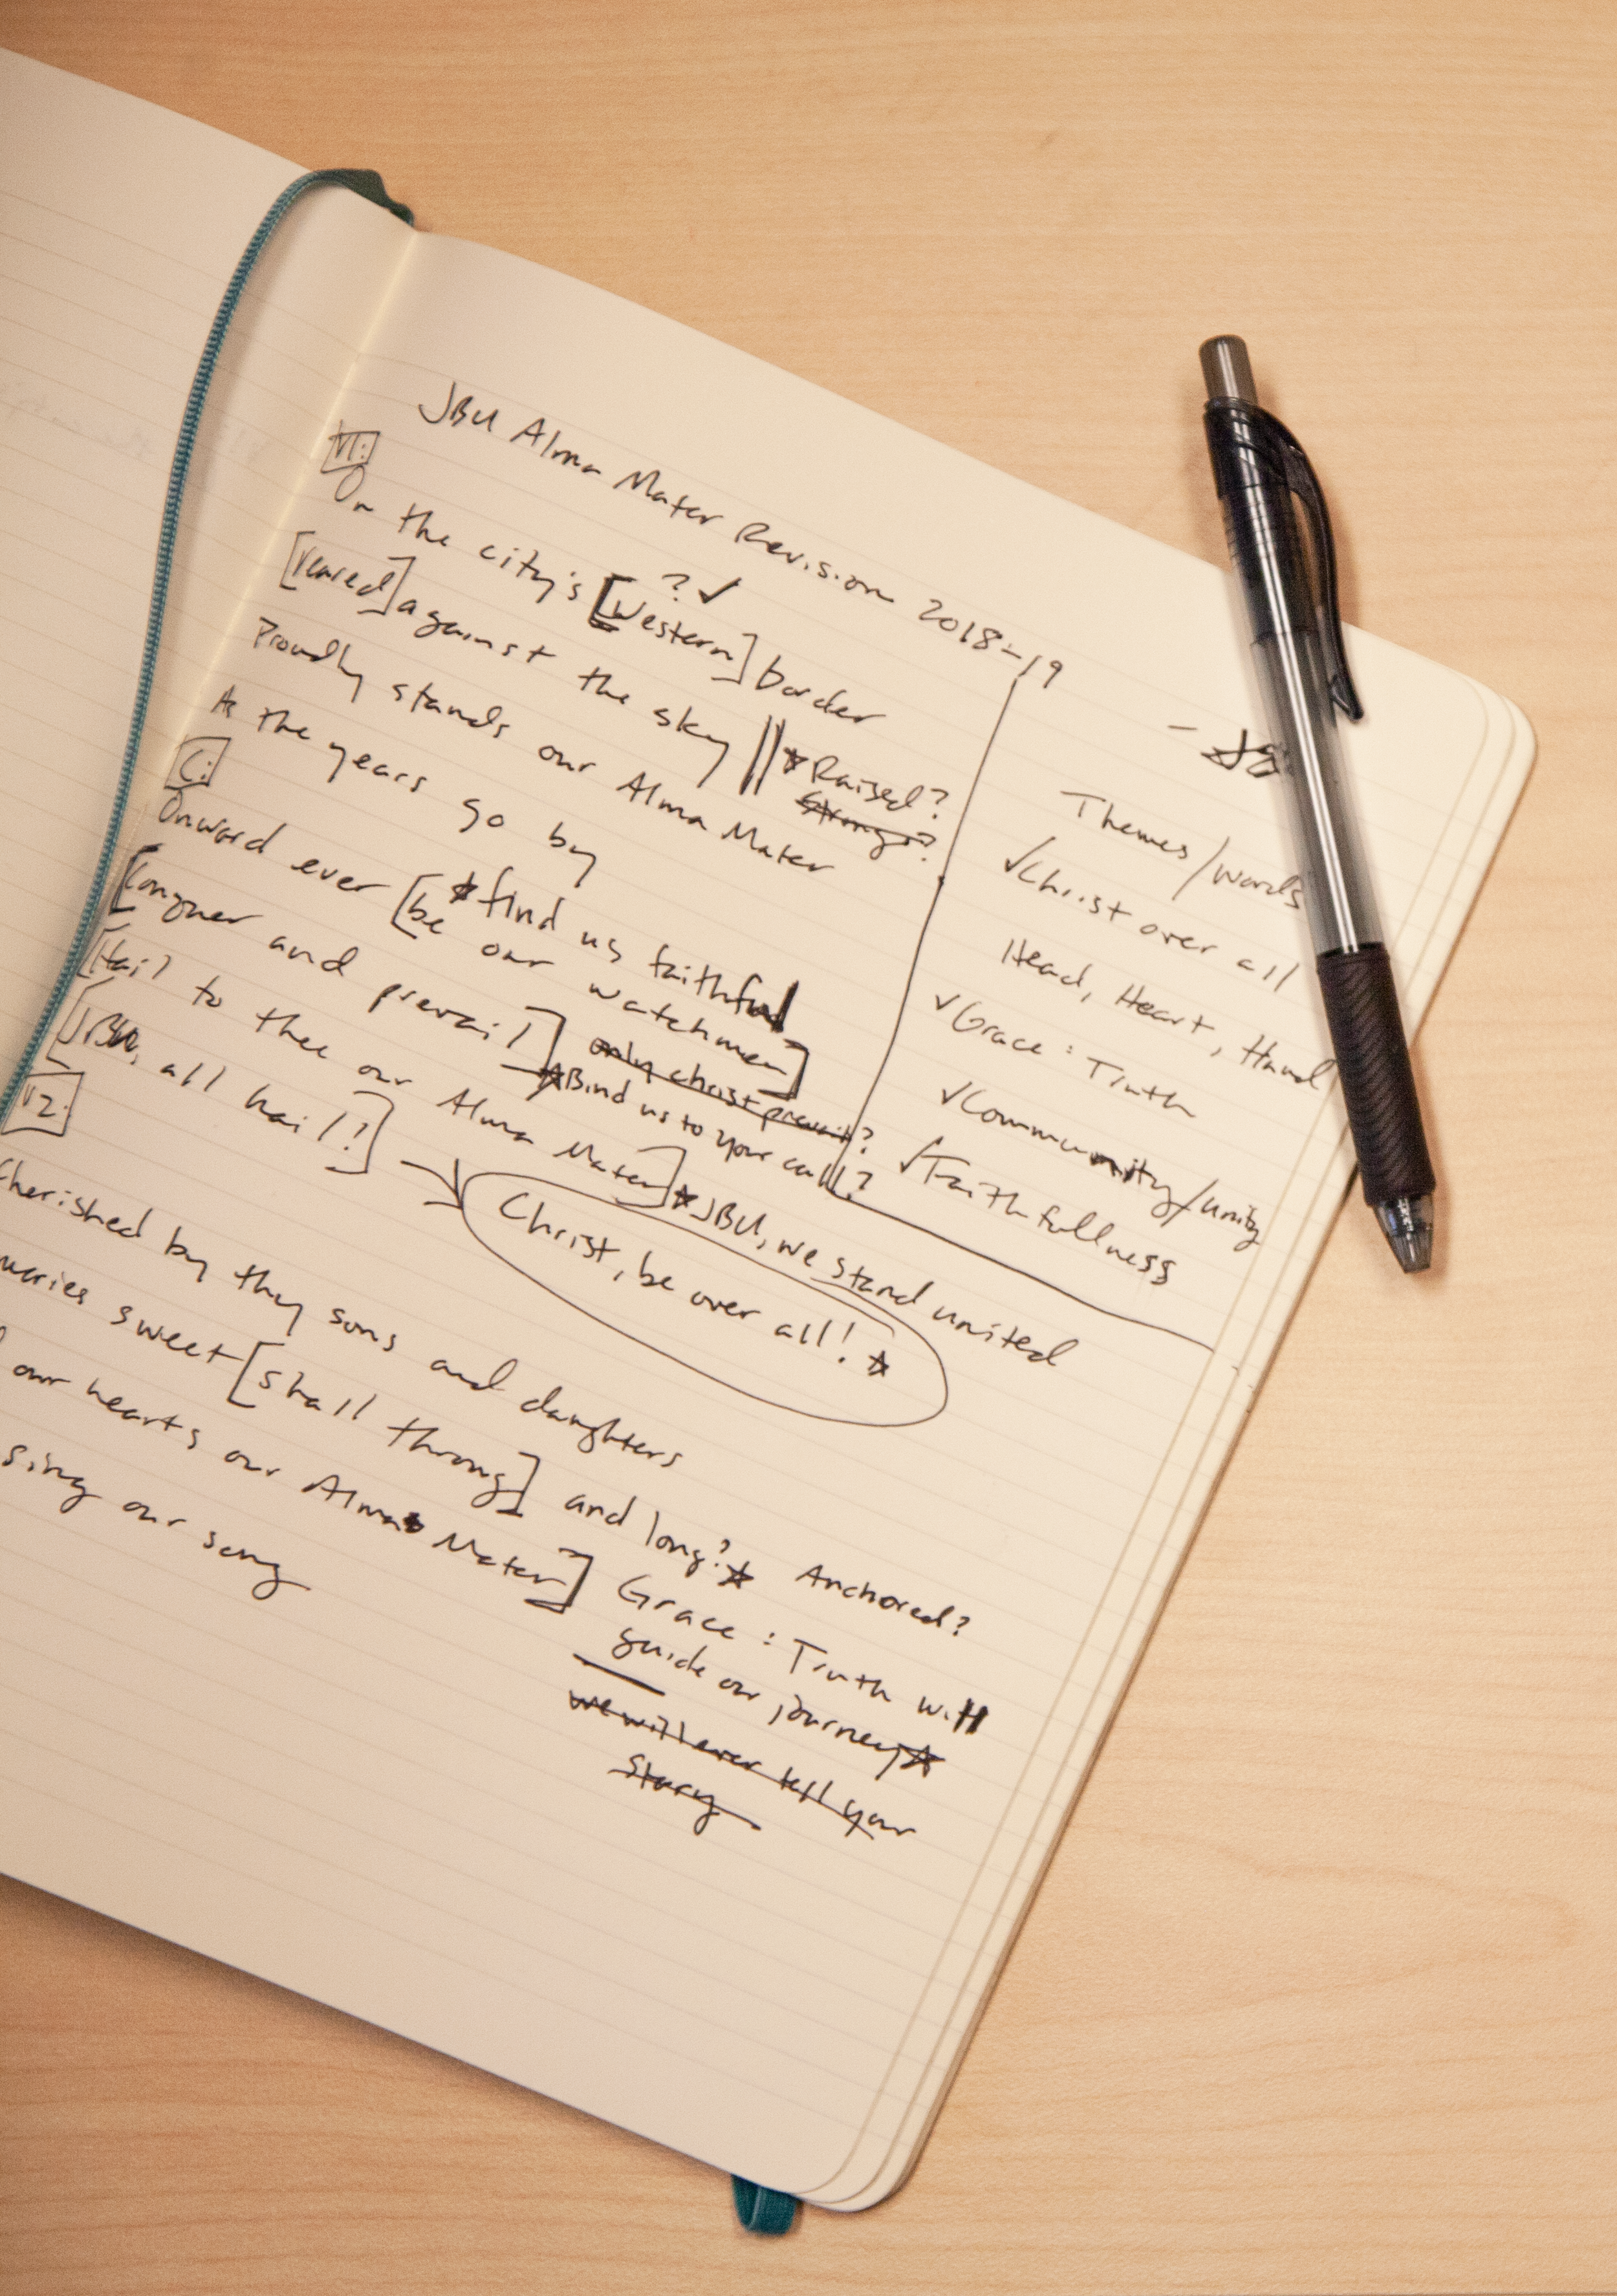 JBU Alma Mater Revision 2018-19
V1:
On the city's [Western] border
? ✓
[reared] against the sky || ★Raised?
Strong?
Proudly stands our Alma Mater
As the years go by
C:
Onward ever [be our watchmen]
★find us faithful
[Conquer and prevail] only christ prevail?
★Bind us to your call?
[Hail to thee our Alma Mater] ★JBU, we stand united
[JBU, all hail!] → Christ, be over all! ★
V2:
Cherished by they sons and daughters
sweet [shall throng] and long?★ Anchored?
our hearts our Alma Mater] Grace : Truth will
guide our journey★
sing our song
we will ever tell your
story
Themes/words
✓Christ over all
Head, Heart, Hand
✓Grace : Truth
✓Community/unity
✓Faithfullness